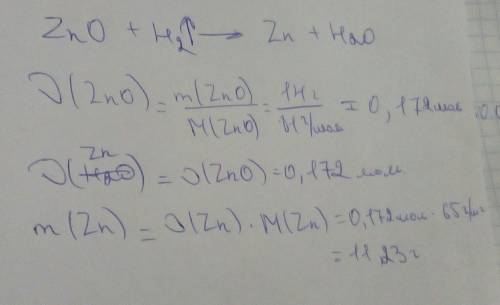 ZnO + H₂↑ → Zn + H₂O
ν(ZnO) = m(ZnO)/M(ZnO) = 14г/81г/моль = 0,172 моль
ν(Zn) = ν(ZnO) = 0,172 моль
m(Zn) = ν(Zn) · M(Zn) = 0,172 моль · 65 г/м
= 11,23 г